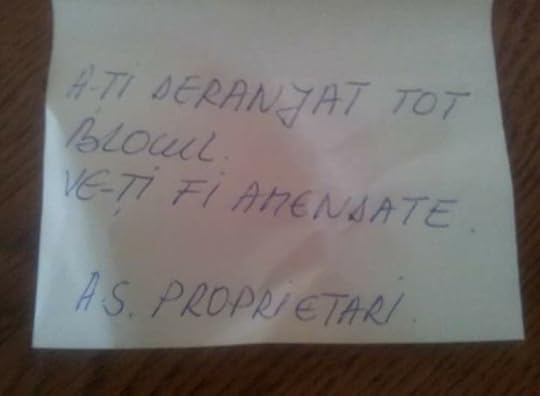 A-ȚI DERANJAT TOT
BLOCUL.
VE-ȚI FI AMENDATE.
A.S. PROPRIETARI.